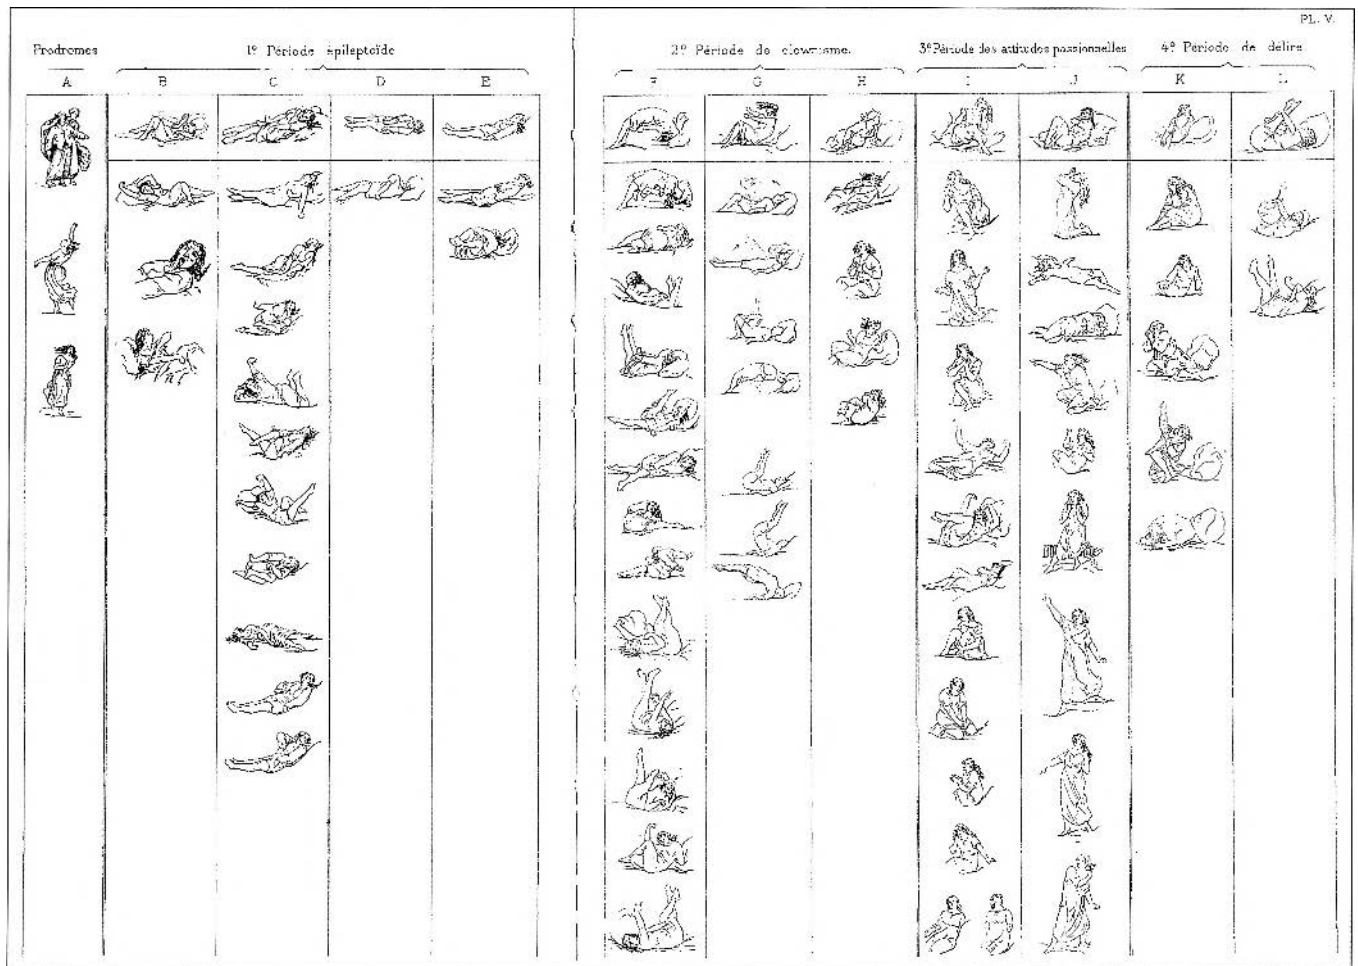 PL. V.
Prodromes
1º Période épileptoïde
2º Période de clownisme.
3º Période des attitudes passionnelles
4º Période de délire
A B C D E F G H I J K L